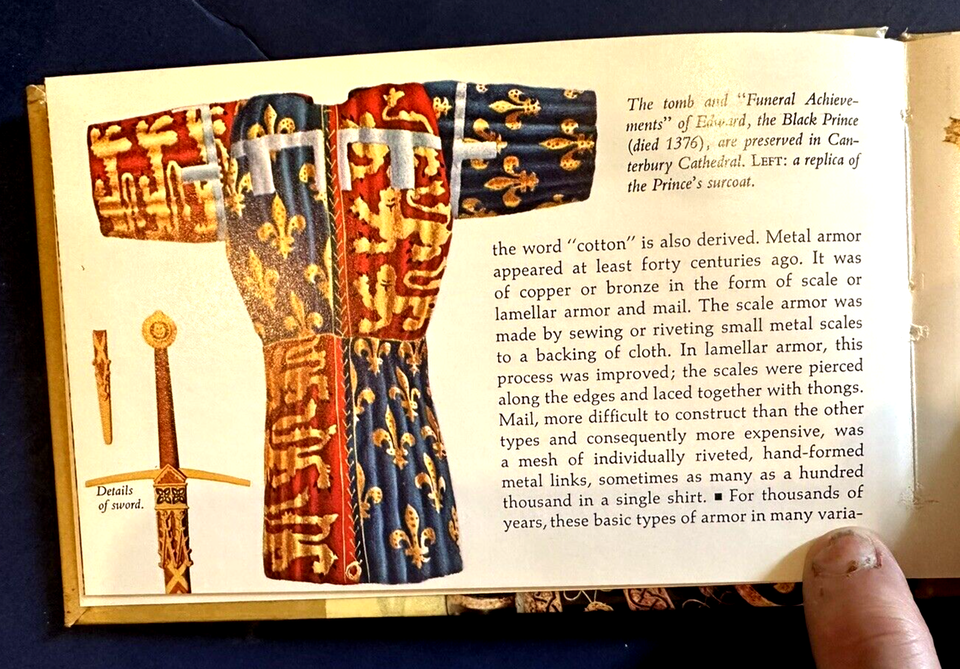 The tomb and "Funeral Achieve-
ments" of Edward, the Black Prince
(died 1376), are preserved in Can-
terbury Cathedral. LEFT: a replica of
the Prince's surcoat.
the word "cotton" is also derived. Metal armor
appeared at least forty centuries ago. It was
of copper or bronze in the form of scale or
lamellar armor and mail. The scale armor was
made by sewing or riveting small metal scales
to a backing of cloth. In lamellar armor, this
process was improved; the scales were pierced
along the edges and laced together with thongs.
Mail, more difficult to construct than the other
types and consequently more expensive, was
a mesh of individually riveted, hand-formed
metal links, sometimes as many as a hundred
thousand in a single shirt. ■ For thousands of
years, these basic types of armor in many varia-
Details
of sword.